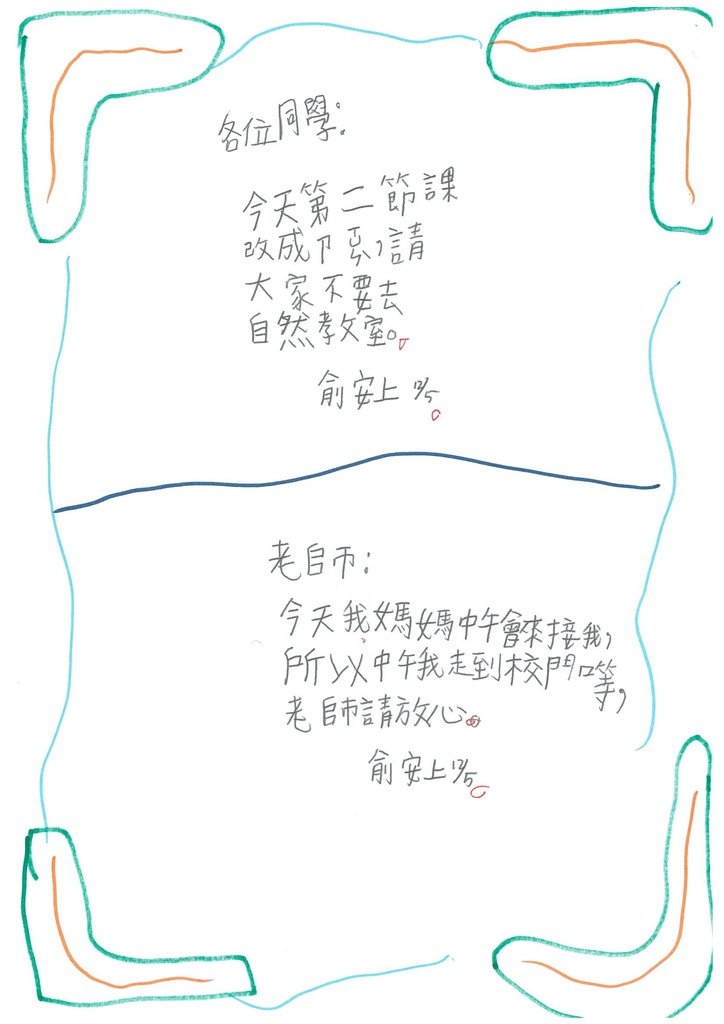 各位同學:
今天第二節課
改成,請
大家不要去
自然教室。
俞安上 12/5
老師:
今天我媽媽中午會來接我,
所以中午我走到校門口等,
老師請放心。
俞安上 12/5